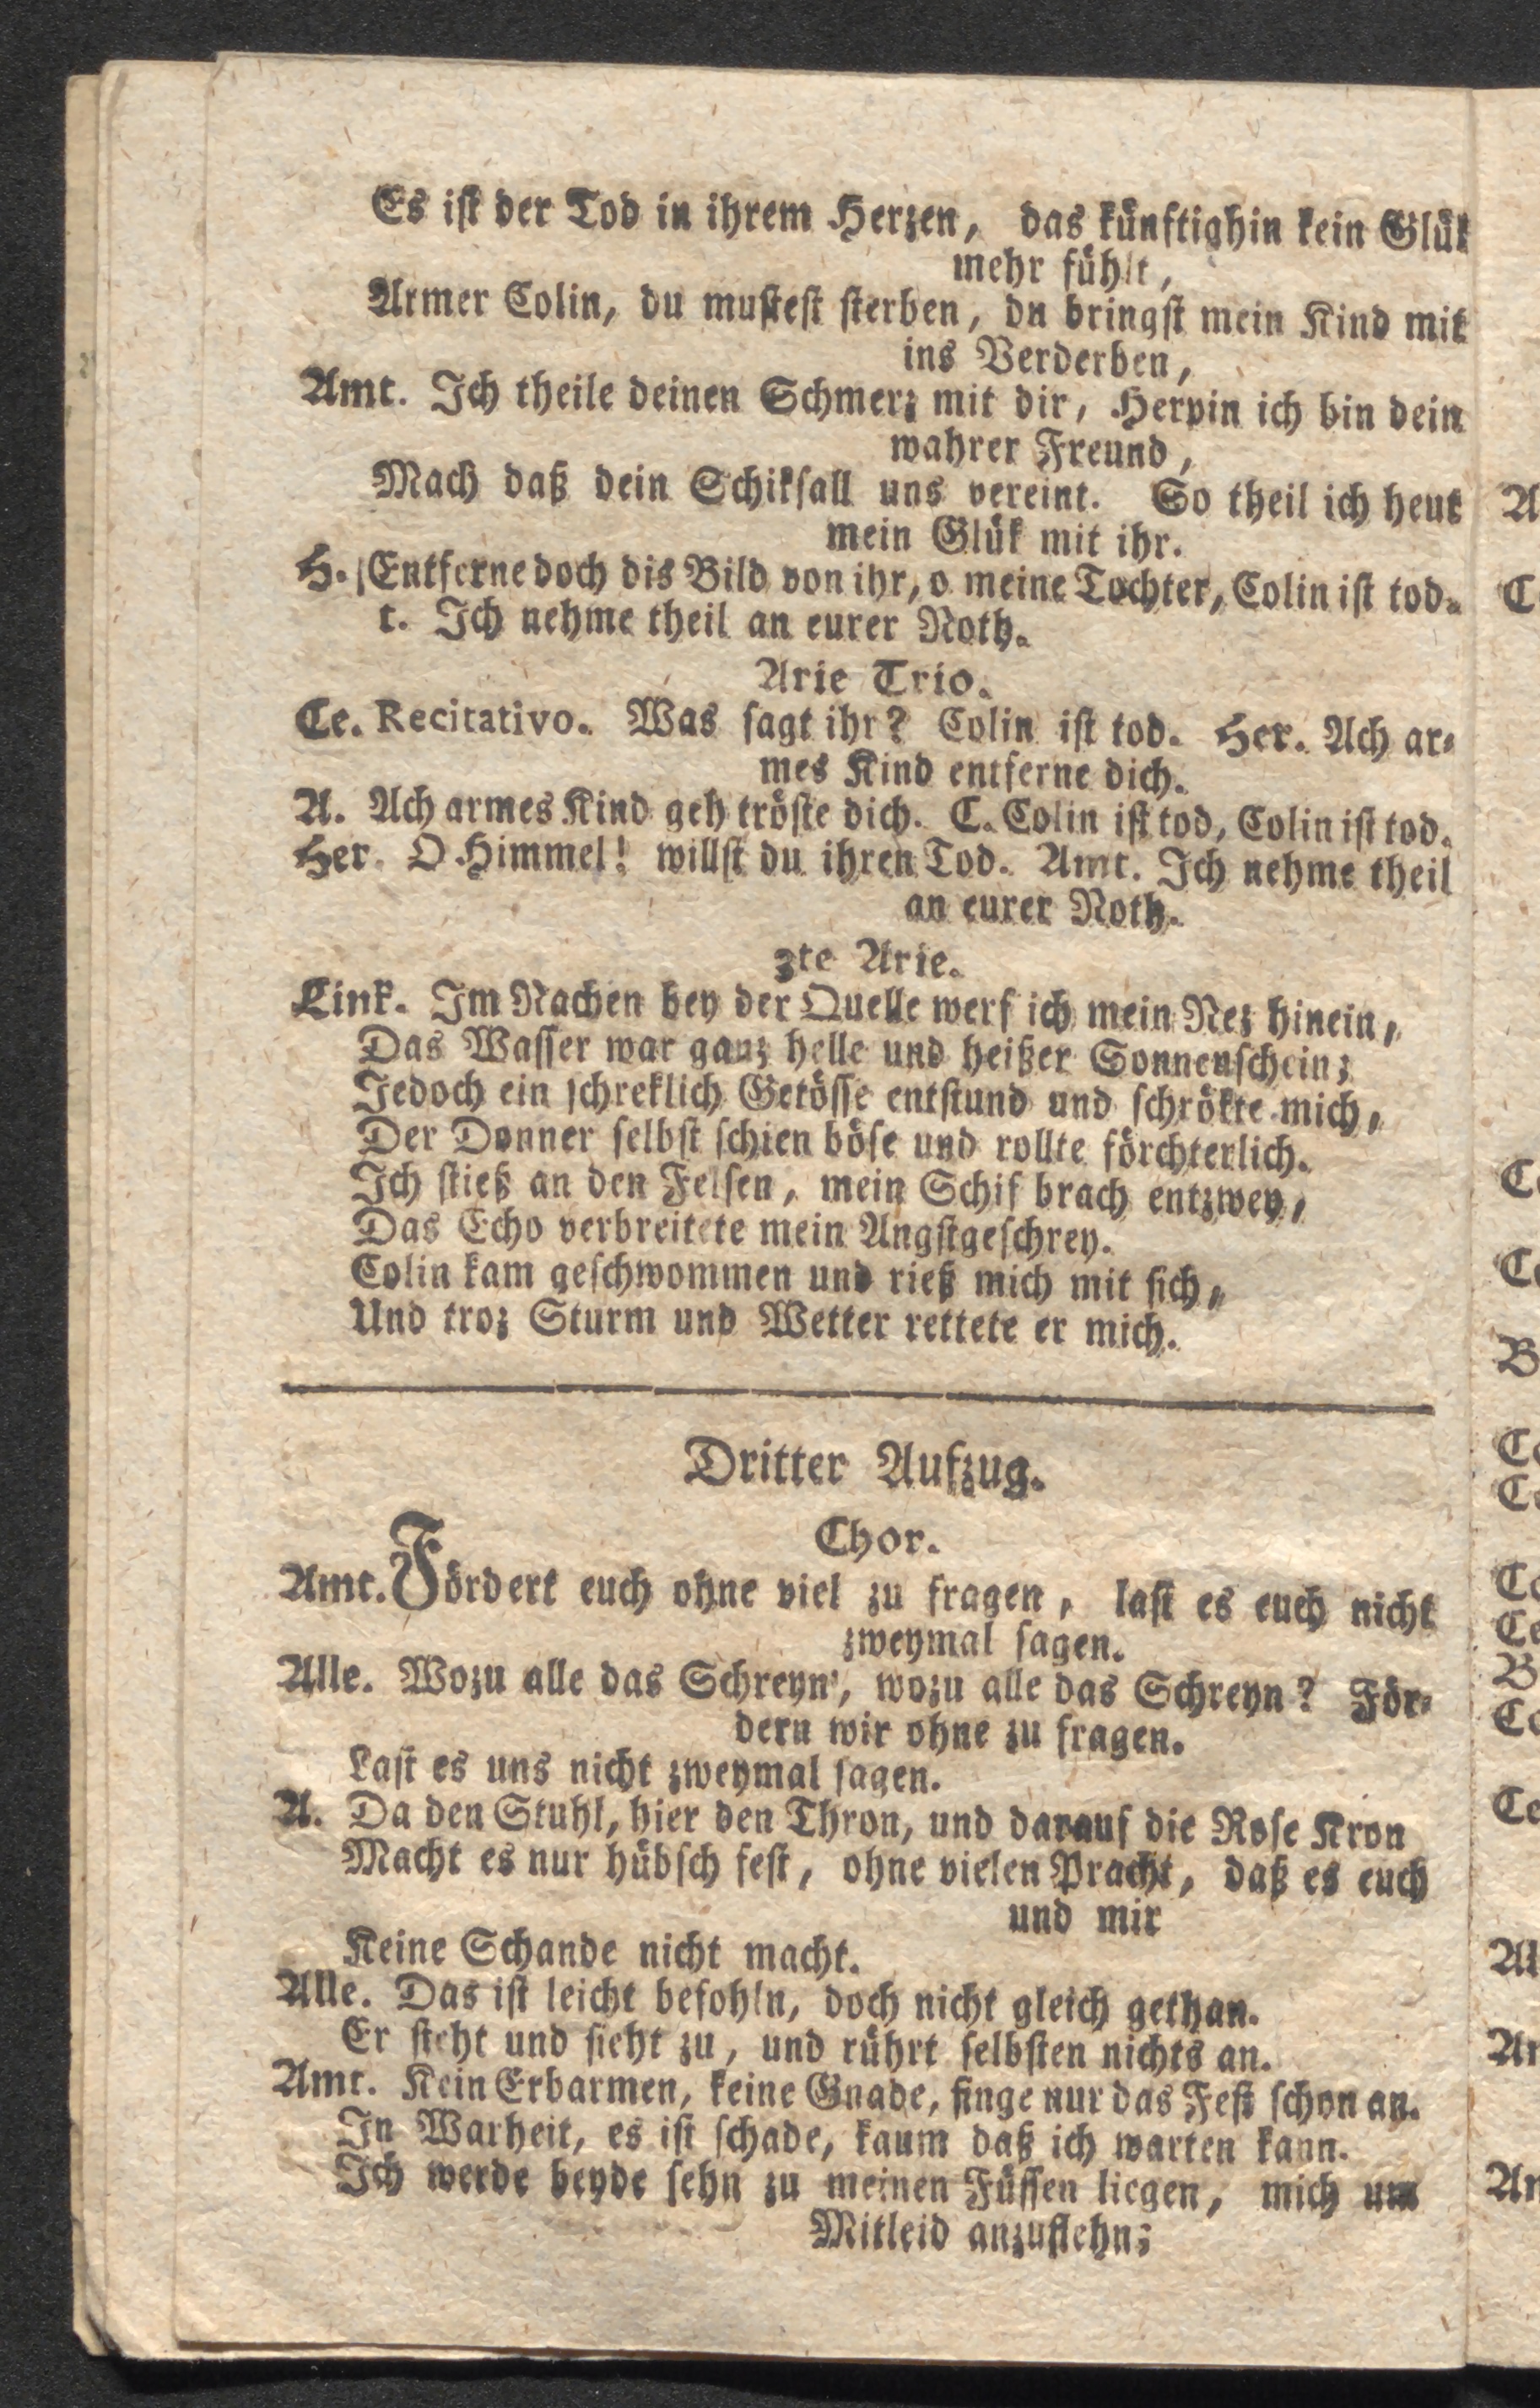 Es ist der Tod in ihrem Herzen, das künftighin kein Glük
mehr fühlt,
Armer Colin, du mustest sterben, du bringst mein Kind mit
ins Verderben,
Amt. Ich theile deinen Schmerz mit dir, Herpin ich bin dein
wahrer Freund,
Mach daß dein Schiksall uns vereint. So theil ich heut
mein Glük mit ihr.
H. Entferne doch dis Bild von ihr, o meine Tochter, Colin ist tod.
t. Ich nehme theil an eurer Noth.
Arie Trio.
Ce. Recitativo. Was sagt ihr? Colin ist tod. Her. Ach ar-
mes Kind entferne dich.
A. Ach armes Kind geh tröste dich. C. Colin ist tod, Colin ist tod.
Her. O Himmel! willst du ihren Tod. Amt. Ich nehme theil
an eurer Noth.
3te Arie.
Link. Im Nachen bey der Quelle werf ich mein Nez hinein,
Das Wasser war ganz helle und heißer Sonnenschein;
Jedoch ein schreklich Getösse entstund und schrökte mich,
Der Donner selbst schien böse und rollte förchterlich.
Ich stieß an den Felsen, mein Schif brach entzwey,
Das Echo verbreitete mein Angstgeschrey.
Colin kam geschwommen und rieß mich mit sich,
Und troz Sturm und Wetter rettete er mich.
Dritter Aufzug.
Chor.
Amt. Fördert euch ohne viel zu fragen, last es euch nicht
zweymal sagen.
Alle. Wozu alle das Schreyn', wozu alle das Schreyn? För-
dern wir ohne zu fragen.
Last es uns nicht zweymal sagen.
A. Da den Stuhl, hier den Thron, und darauf die Rose Kron
Macht es nur hübsch fest, ohne vielen Pracht, daß es euch
und mir
Keine Schande nicht macht.
Alle. Das ist leicht befohln, doch nicht gleich gethan.
Er steht und sieht zu, und rührt selbsten nichts an.
Amt. Kein Erbarmen, keine Gnade, finge nur das Fest schon an.
In Warheit, es ist schade, kaum daß ich warten kann.
Ich werde beyde sehn zu meinen Füssen liegen, mich um
Mitleid anzuflehn;